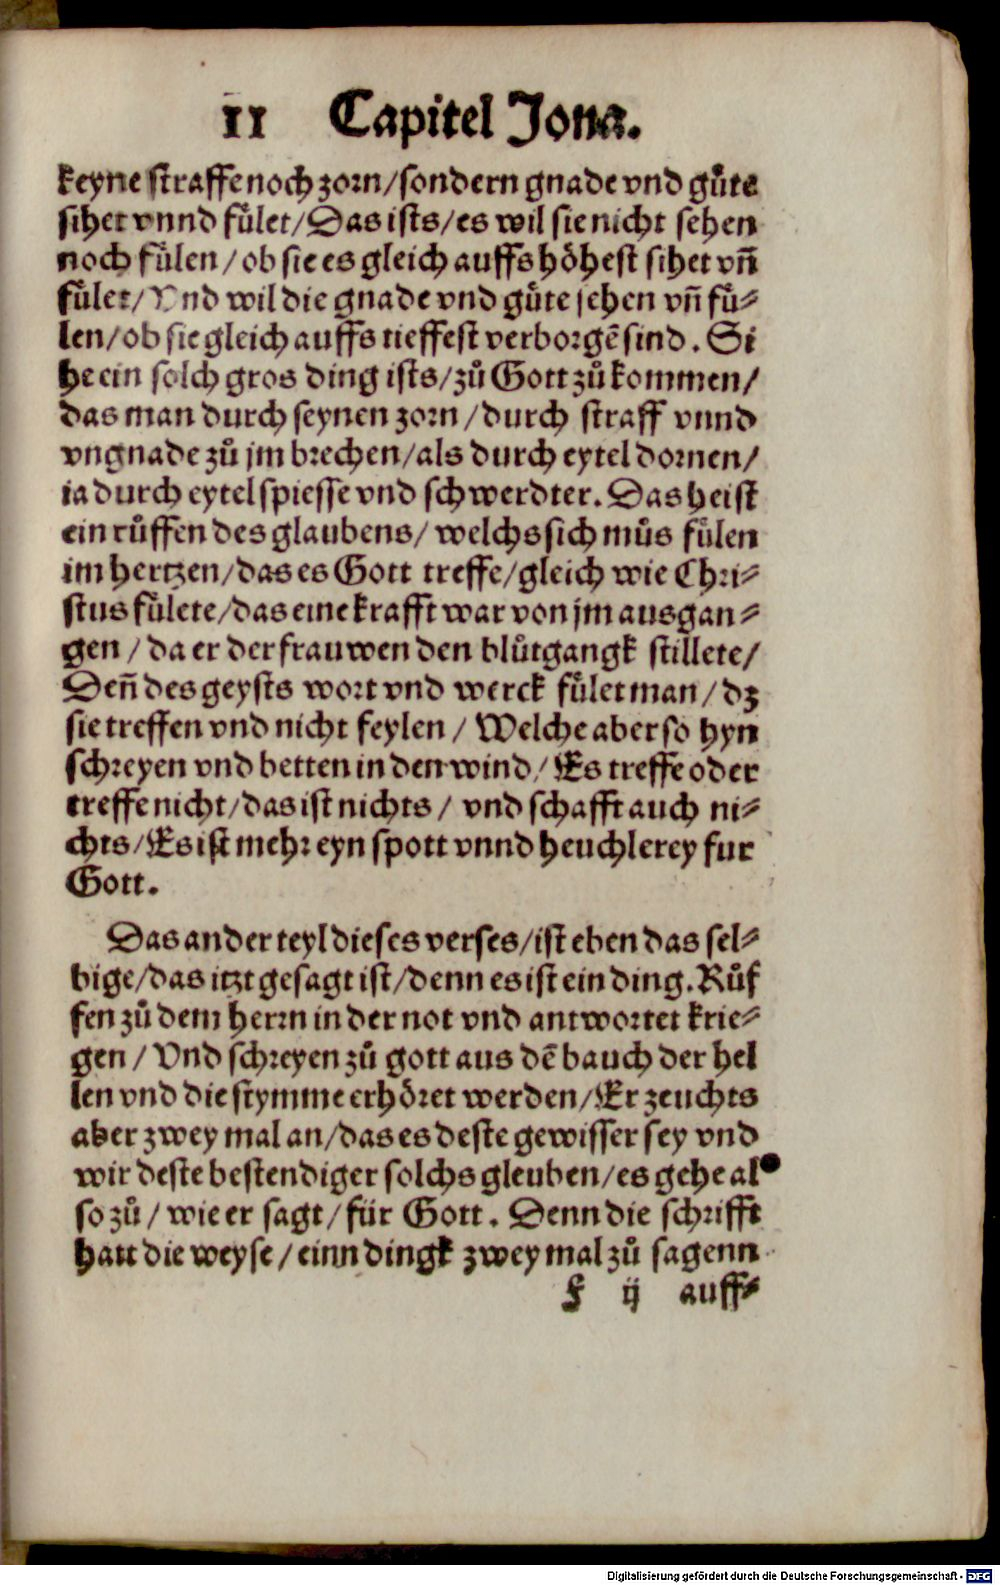 II Capitel Jona.
keyne straffe noch zorn/sondern gnade vnd guͤte
sihet vnnd fuͤlet/Das ists/es wil sie nicht sehen
noch fuͤlen/ob sie es gleich auffs hoͤhest sihet vñ
fuͤlet/Vnd wil die gnade vnd guͤte sehen vñ fuͤ⸗
len/ob sie gleich auffs tieffest verborgẽ sind. Si
he ein solch gros ding ists/zů Gott zů kommen/
das man durch seynen zorn/durch straff vnnd
vngnade zů jm brechen/als durch eytel dornen/
ia durch eytel spiesse vnd schwerdter. Das heist
ein růffen des glaubens/welchs sich můs fuͤlen
im hertzen/das es Gott treffe/gleich wie Chri⸗
stus fuͤlete/das eine krafft war von jm ausgan⸗
gen/da er der frauwen den blůtgangk stillete/
Deñ des geysts wort vnd werck fuͤlet man/dz
sie treffen vnd nicht feylen/Welche aber so hyn
schreyen vnd betten in den wind/Es treffe oder
treffe nicht/das ist nichts/vnd schafft auch ni⸗
chts/Es ist mehr eyn spott vnnd heuchlerey fur
Gott.
Das ander teyl dieses verses/ist eben das sel⸗
bige/das itzt gesagt ist/denn es ist ein ding. Růf
fen zů dem herrn in der not vnd antwortet krie⸗
gen/Vnd schreyen zů gott aus dẽ bauch der hel
len vnd die stymme erhoͤret werden/Er zeuchts
aber zwey mal an/das es deste gewisser sey vnd
wir deste bestendiger solchs gleuben/es gehe al
so zů/wie er sagt/für Gott. Denn die schrifft
hatt die weyse/einn dingk zwey mal zů sagenn
F ij auff⸗
Digitalisierung gefördert durch die Deutsche Forschungsgemeinschaft - DFG